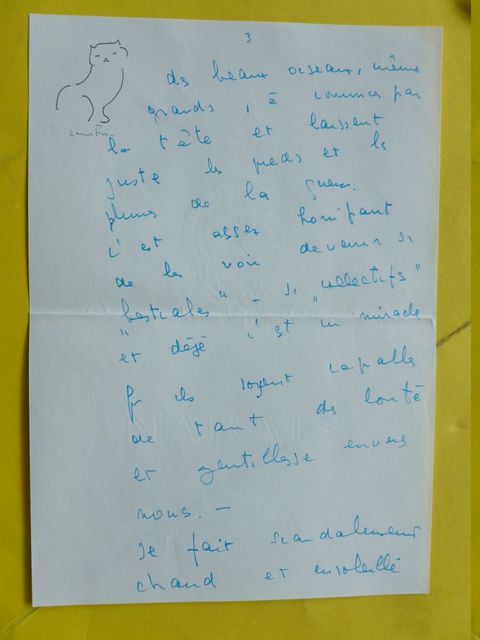 3
des beaux oiseaux, même
grands, à commencer par
la tête et laissent
juste les pieds et les
plumes de la queue.
c'est assez horrifiant
de les voir devenir si
"bestiales" – si "collectifs"
et déjà c'est un miracle
qu'ils soyent capables
de tant de bonté
et gentillesse envers
nous. —
Il fait scandaleusement
chaud et ensoleillé